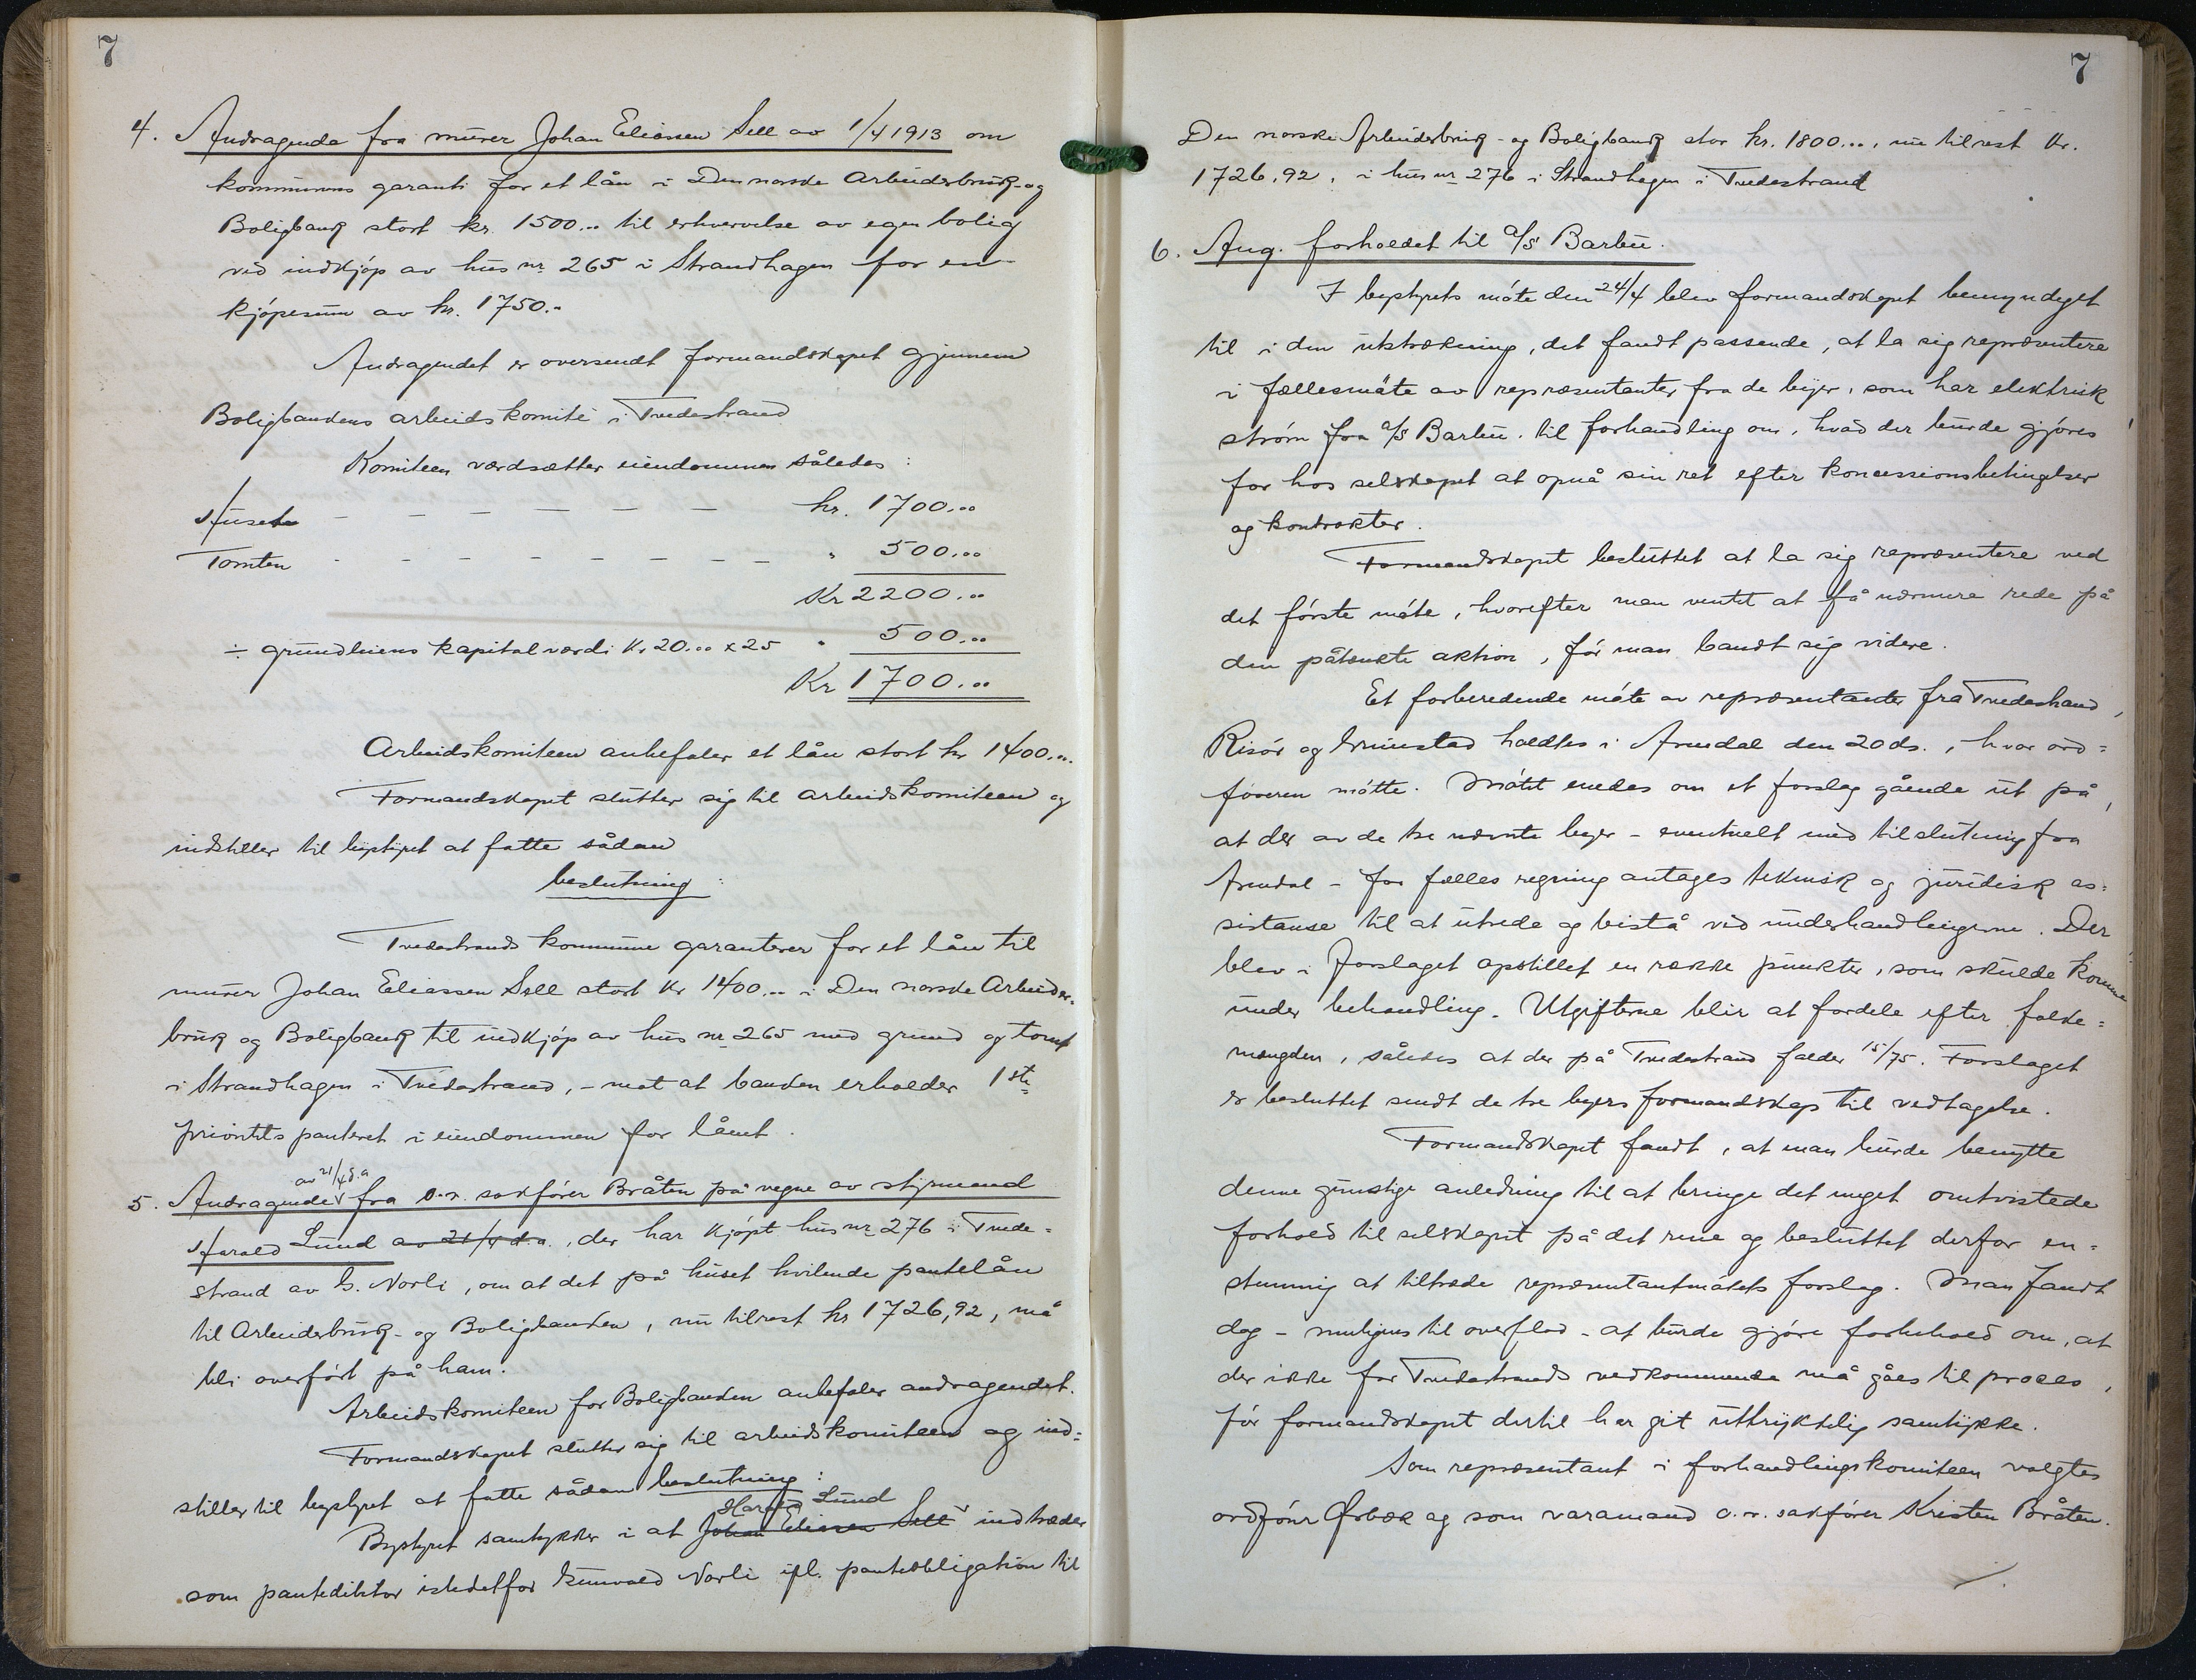 7
4. Andragende fra murer Johan Eliassen Sell av 1/4 1913 om
kommunens garanti for et lån i Den norske Arbeiderbruk- og
Boligbank stort kr. 1500.00 til erhvervelse av egen bolig
ved indkjøp av hus nr 265 i Strandhagen for en
kjøpesum av kr. 1750.-
Andragendet er oversendt formandskapet gjennem
Boligbankens arbeidskomité i Tvedestrand
Komiteen værdsætter eiendommen således:
Huset - - - - - - - kr. 1700.00
Tomten - - - - - - - " 500.00
Kr 2200.00
÷ grundleiens kapitalværdi Kr 20.00 x 25 " 500.00
Kr 1700.00
Arbeidskomiteen anbefaler et lån stort kr 1400.00.
Formandskapet slutter sig til arbeidskomiteen og
indstiller til bystyret at fatte sådan
beslutning:
Tvedestrands kommune garanterer for et lån til
murer Johan Eliassen Sell stort kr 1400.00 i Den norske Arbeider-
bruk og Boligbank til indkjøp av hus nr 265 med grund og tomt
i Strandhagen i Tvedestrand, - mot at banken erholder 1ste
prioritets panteret i eiendommen for lånet.
av 21/4 d.a
5. Andragende fra o.r. sakfører Bråten på vegne av styrmand
Harald Lund av 21/4 d.a., der har kjøpt hus nr 276 i Tvede-
strand av G. Norli, om at det på huset hvilende pantelån
til Arbeiderbruk- og Boligbanken, nu tilrest kr 1726,92, må
bli overført på ham.
Arbeidskomiteen for Boligbanken anbefaler andragendet.
Formandskapet slutter sig til arbeidskomiteen og ind-
stiller til bystyret at fatte sådan beslutning:
Harald Lund
Bystyret samtykker i at Johan Eliassen Sell indtræder
som pantedebitor istedetfor Gunvald Norli ifl. panteobligation til
7
Den norske Arbeiderbruk- og Boligbank stor kr. 1800.00, nu tilrest kr.
1726,92, i hus nr 276 i Strandhagen i Tvedestrand
6. Ang. forholdet til a/s Barbu.
I bystyrets møte den 24/4 blev formandskapet bemyndiget
til i den utstrækning, det fandt passende, at la sig repræsentere
i fællesmøte av repræsentanter fra de byer, som har elektrisk
strøm fra a/s Barbu, til forhandling om, hvad der burde gjøres
for hos selskapet at opnå sin ret efter koncessionsbetingelser
og kontrakter.
Formandskapet besluttet at la sig repræsentere ved
det første møte, hvorefter man ventet at få nærmere rede på
den påtænkte aktion, før man bandt sig videre.
Et forberedende møte av repræsentanter fra Tvedestrand,
Risør og Grimstad holdtes i Arendal den 20 ds., hvor ord-
føreren møtte. Møtet enedes om et forslag gående ut på,
at der av de tre nævnte byer - eventuelt med tilslutning fra
Arendal - for fælles regning antages teknisk og juridisk as-
sistanse til at utrede og bistå ved underhandlingerne. Der
blev i forslaget opstillet en række punkter, som skulde komme
under behandling. Utgifterne blir at fordele efter folke-
mængden, således at der på Tvedestrand falder 15/75. Forslaget
er besluttet sendt de tre byers formandskap til vedtagelse.
Formandskapet fandt, at man burde benytte
denne gunstige anledning til at bringe det meget omtvistede
forhold til selskapet på det rene og besluttet derfor en-
stemmig at tiltræde repræsentantmøtets forslag. Man fandt
dog - muligens til overflod - at burde gjøre forbehold om, at
der ikke for Tvedestrands vedkommende må gåes til proces,
før formandskapet dertil har git uttrykkelig samtykke.
Som repræsentant i forhandlingskomiteen valgtes
ordfører Ørbæk og som varamand o.r. sakfører Kristen Bråten.